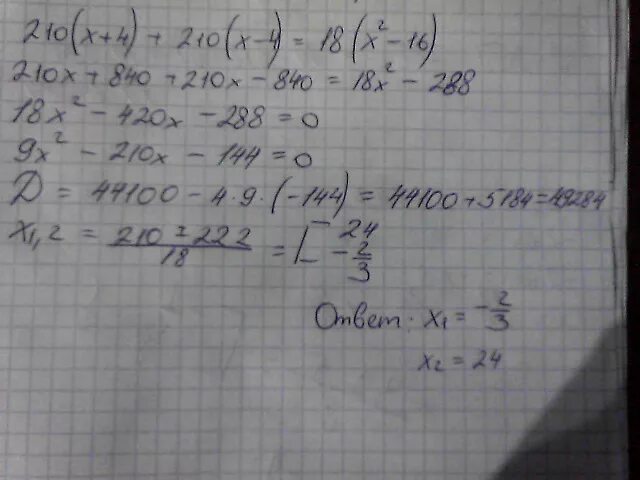 210(x+4) + 210(x-4) = 18(x²-16)
210x + 840 + 210x - 840 = 18x² - 288
18x² - 420x - 288 = 0
9x² - 210x - 144 = 0
D = 44100 - 4·9·(-144) = 44100 + 5184 = 49284
x₁,₂ = (210 ± 222)/18 = [24; -2/3
Ответ: x₁ = -2/3
x₂ = 24